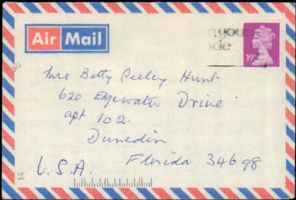 Air Mail
19
Mrs Betty Peeley Hunt
620 Edgewater Drive
apt 102.
Dunedin
Florida 34698
U.S.A.